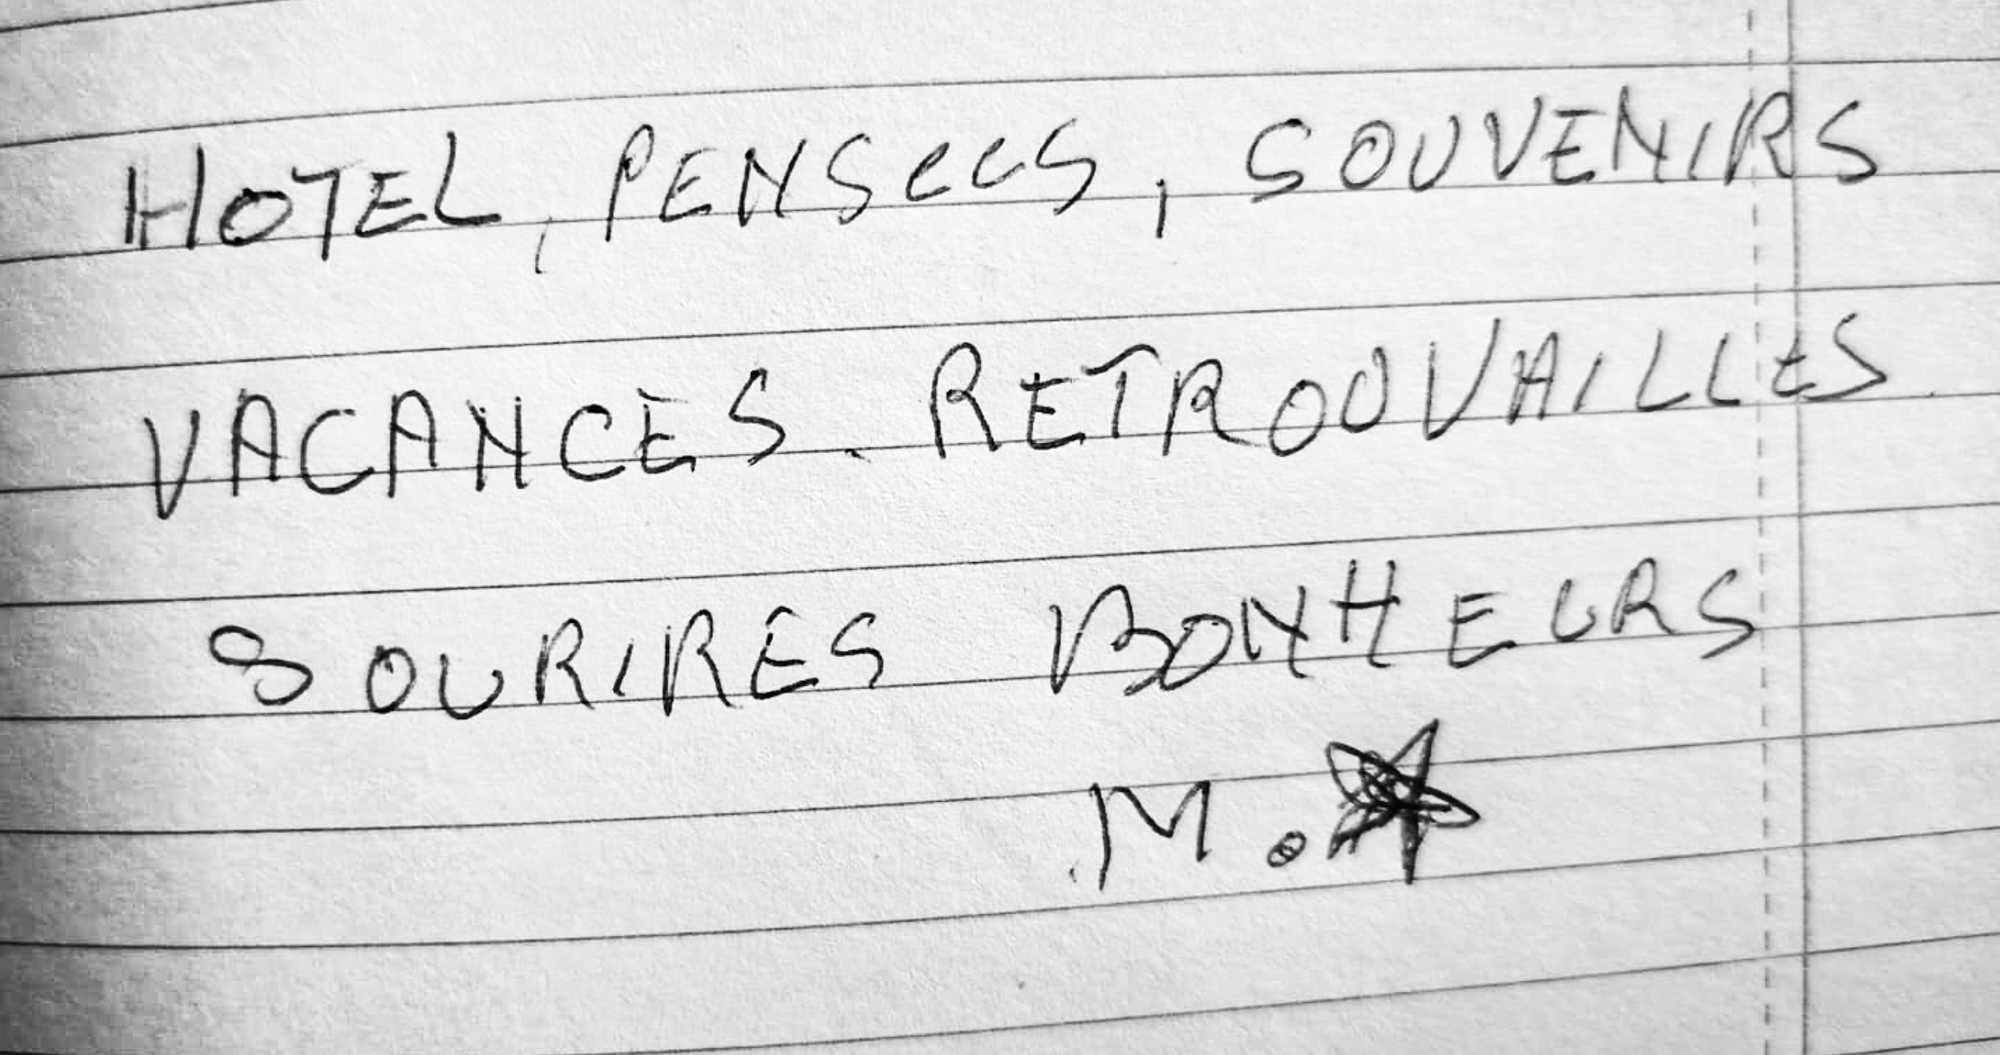 HOTEL, PENSeeS, SOUVENIRS
VACANCES. RETROUVAILLES
SOURIRES BONHEURS
M.